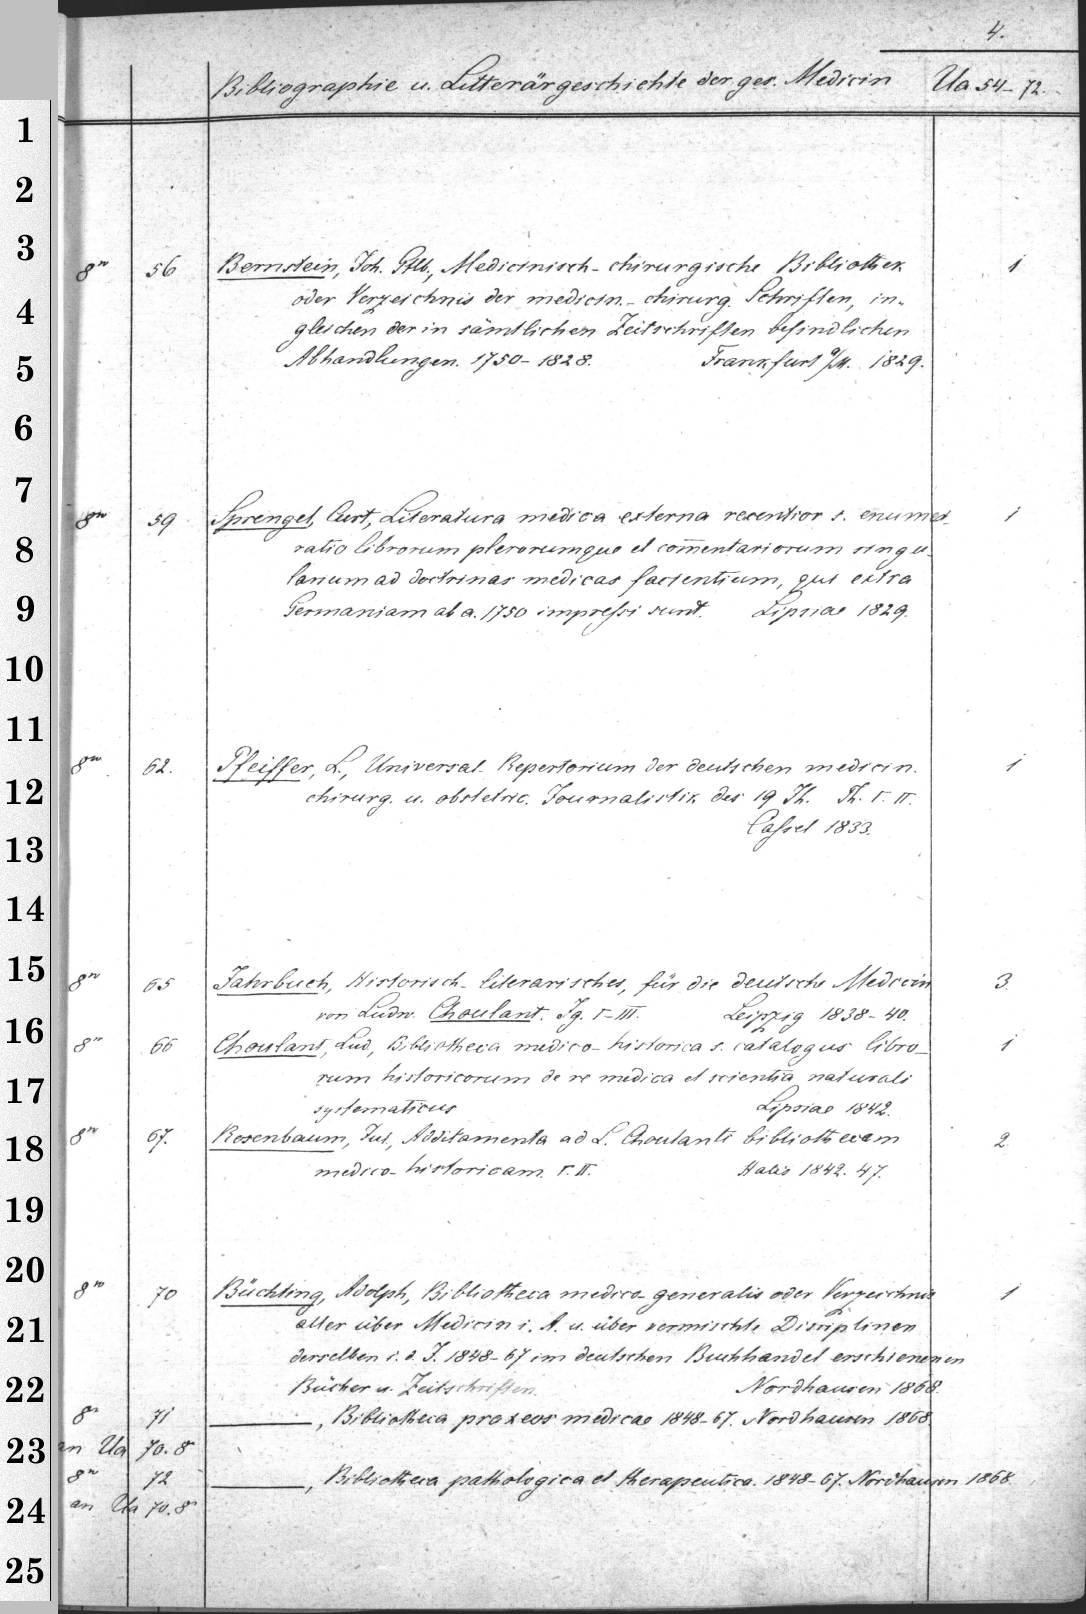 4.
Bibliographie u. Litterärgeschichte der ges. Medicin Ua 54-72.
1
2
3
4
5
6
7
8
9
10
11
12
13
14
15
16
17
18
19
20
21
22
23
24
25
8vo 56 Bernstein, Joh. Gttlb., Medicinisch-chirurgische Bibliothek 1
oder Verzeichnis der medicin.-chirurg. Schriften, in-
gleichen der in sämtlichen Zeitschriften befindlichen
Abhandlungen. 1750-1828. Frankfurt a/M. 1829.
8vo 59 Sprengel, Curt, Literatura medica externa recentior s. enume- 1
ratio librorum plerorumque et com̄entariorum singu-
larium ad doctrinas medicas facientium, qui extra
Germaniam ab a. 1750 impressi sunt. Lipsiae 1829.
8vo 62. Pfeiffer, L., Universal-Repertorium der deutschen medicin. 1
chirurg. u. obstetric. Journalistik des 19 Jh. Th. I. II.
Cassel 1833.
8vo 65 Jahrbuch, Historisch-literarisches, für die deutsche Medicin 3.
von Ludw. Choulant. Jg. I-III. Leipzig 1838-40.
8vo 66 Choulant, Lud, Bibliotheca medico-historica s. catalogus libro- 1
rum historicorum de re medica et scientia naturali
systematicus Lipsiae 1842.
8vo 67. Rosenbaum, Jul, Additamenta ad L. Choulanti bibliothecam 2
medico-historicam. I. II. Halis 1842. 47.
8vo 70 Büchting, Adolph, Bibliotheca medica generalis oder Verzeichnis 1
aller über Medicin i. A. u. über vermischte Disciplinen
derselben i. d. J. 1848-67 im deutschen Buchhandel erschienenen
Bücher u. Zeitschriften. Nordhausen 1868.
8o 71 ———, Bibliotheca praxeos medicae 1848-67. Nordhausen 1868.
an Ua 70.8o
8vo 72 ———, Bibliotheca pathologica et therapeutica. 1848-67. Nordhausen 1868.
an Ua 70.8o